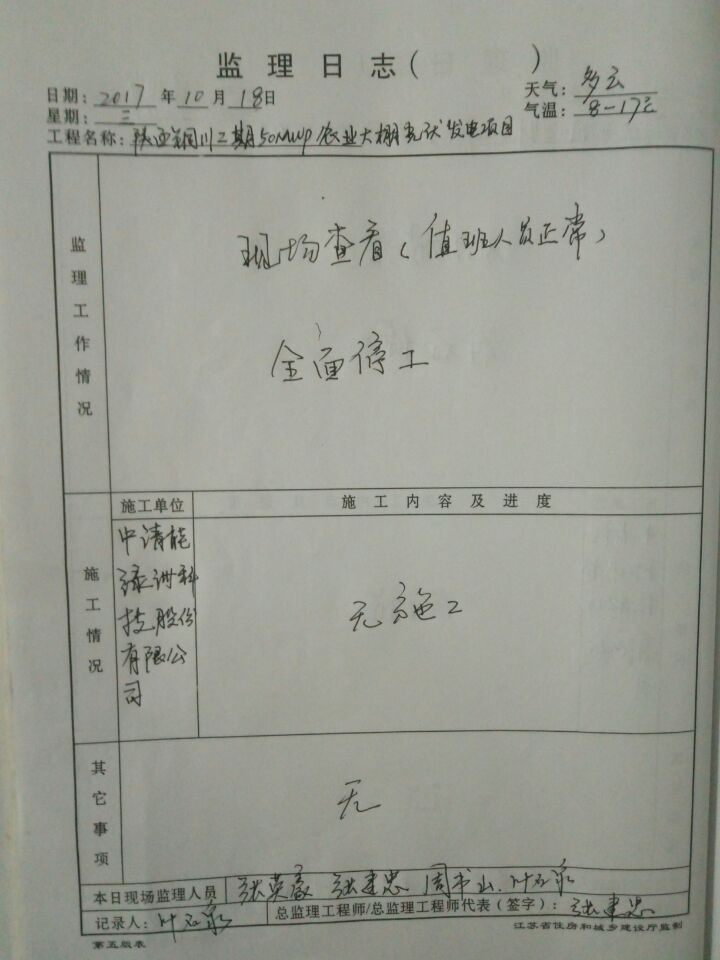 监理日志( )
日期: 2017 年 10 月 18 日
天气: 多云
星期: 三
气温: 8-17℃
工程名称: 陕西铜川二期50MWp农业大棚光伏发电项目
监理工作情况
现场查看(值班人员正常)
全面停工
施工情况
施工单位
施工内容及进度
中清能
绿洲科
技股份
有限公
司
无施工
其它事项
无
本日现场监理人员 张英 张建忠 周书山
总监理工程师/总监理工程师代表(签字): 张建忠
记录人: 叶
第五版表
江苏省住房和城乡建设厅监制